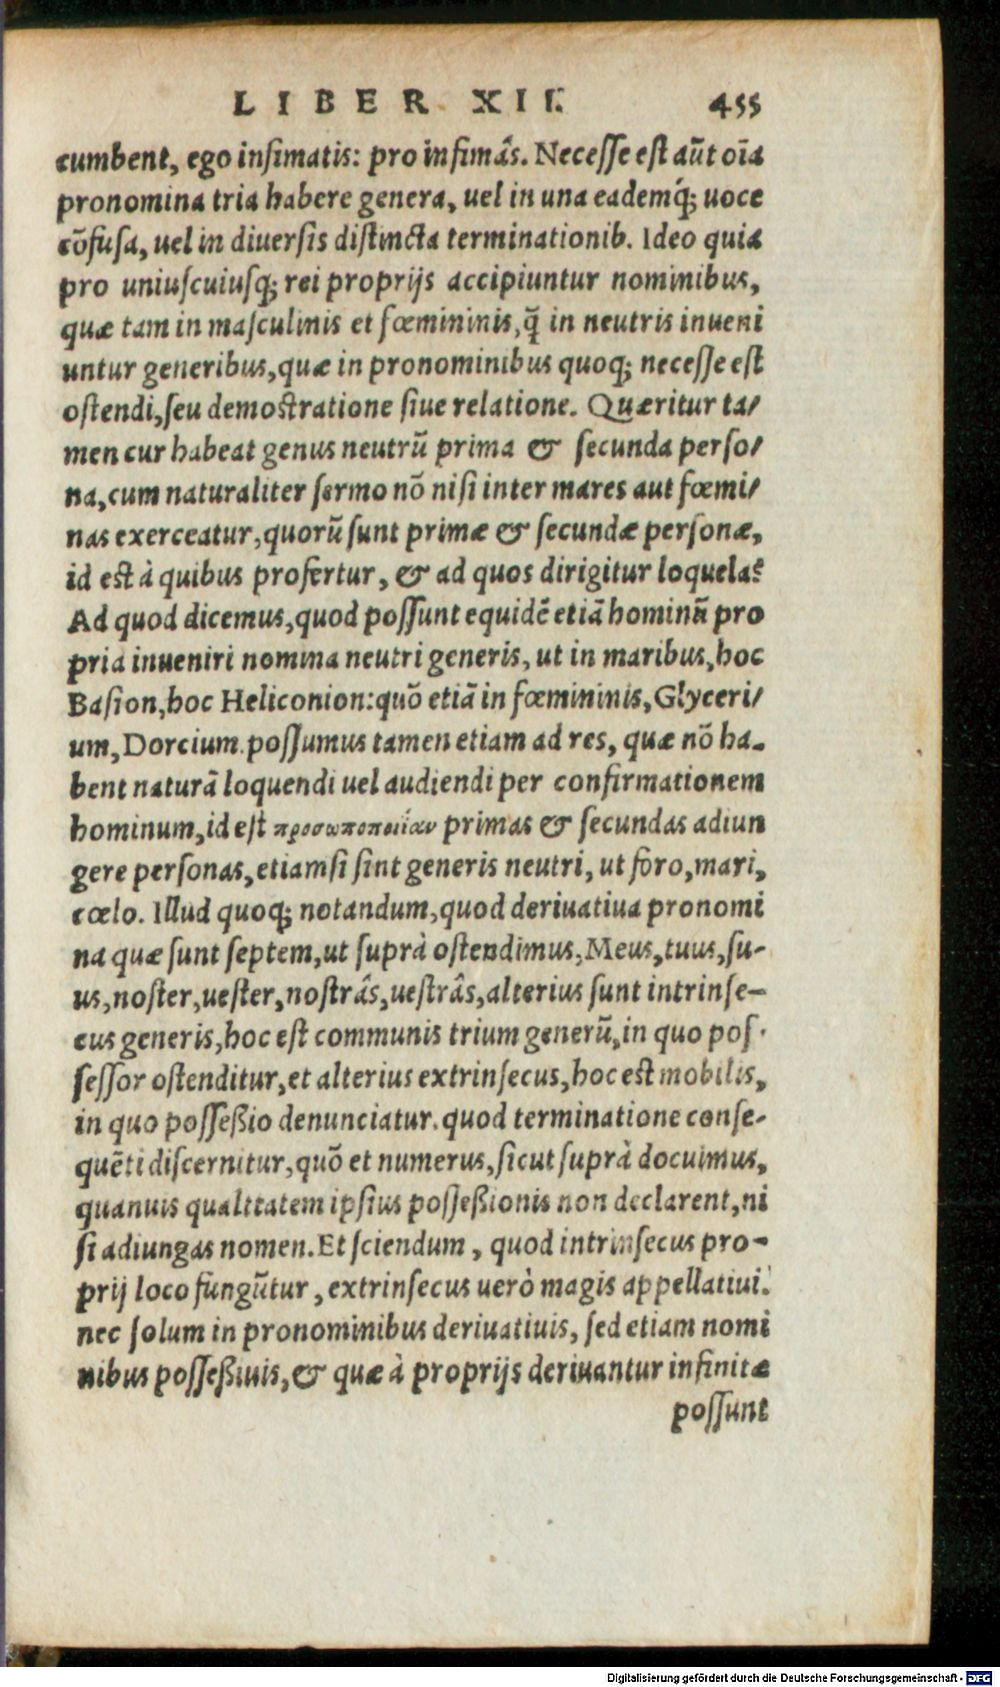 LIBER XII. 455
cumbent, ego infimatis: pro infimâs. Necesse est aũt oĩa
pronomina tria habere genera, uel in una eademq́; uoce
cõfusa, uel in diuersis distincta terminationib. Ideo quia
pro uniuscuiusq; rei proprijs accipiuntur nominibus,
quæ tam in masculinis et fœmininis, q̃ in neutris inueni
untur generibus, quæ in pronominibus quoq; necesse est
ostendi, seu demostratione siue relatione. Quæritur ta/
men cur habeat genus neutrũ prima & secunda perso/
na, cum naturaliter sermo nõ nisi inter mares aut fœmi/
nas exerceatur, quorũ sunt primæ & secundæ personæ,
id est à quibus profertur, & ad quos dirigitur loquela?
Ad quod dicemus, quod possunt equidẽ etiã hominũ pro
pria inueniri nomina neutri generis, ut in maribus, hoc
Basion, hoc Heliconion: quõ etiã in fœmininis, Glyceri/
um, Dorcium. possumus tamen etiam ad res, quæ nõ ha-
bent naturã loquendi uel audiendi per confirmationem
hominum, id est προσωποποιίαν primas & secundas adiun
gere personas, etiamsi sint generis neutri, ut foro, mari,
cœlo. Illud quoq; notandum, quod deriuatiua pronomi
na quæ sunt septem, ut suprà ostendimus, Meus, tuus, su-
us, noster, uester, nostrâs, uestrâs, alterius sunt intrinse-
cus generis, hoc est communis trium generũ, in quo pos-
sessor ostenditur, et alterius extrinsecus, hoc est mobilis,
in quo posseßio denunciatur. quod terminatione conse-
quẽti discernitur, quõ et numerus, sicut suprà docuimus,
quanuis qualitatem ipsius posseßionis non declarent, ni
si adiungas nomen. Et sciendum, quod intrinsecus pro-
prij loco fungũtur, extrinsecus uerò magis appellatiui.
nec solum in pronominibus deriuatiuis, sed etiam nomi
nibus possessßiuis, & quæ à proprijs deriuantur infinitæ
possunt
Digitalisierung gefördert durch die Deutsche Forschungsgemeinschaft - DFG